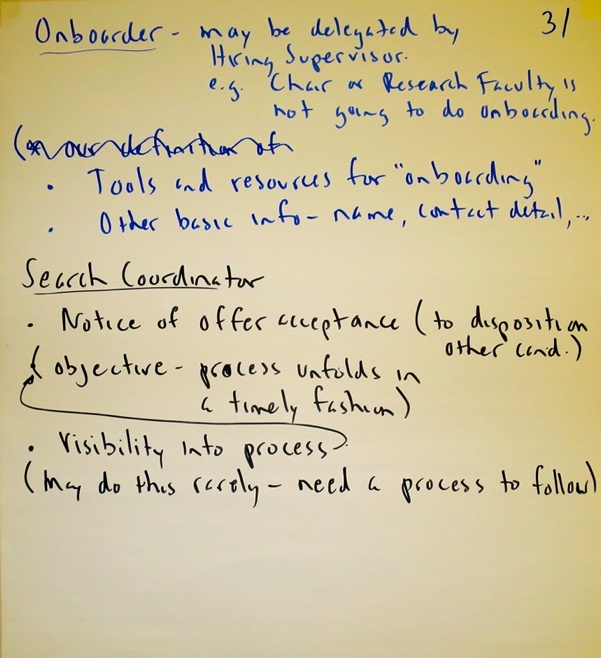 Onboarder - may be delegated by 31
Hiring Supervisor.
e.g. Chair or Research Faculty is
not going to do onboarding.
(* our definition of
• Tools and resources for "onboarding"
• Other basic info - name, contact detail,...
Search Coordinator
• Notice of offer acceptance (to disposition
other cand.)
(objective - process unfolds in
a timely fashion)
• Visibility into process
(May do this rarely - need a process to follow)